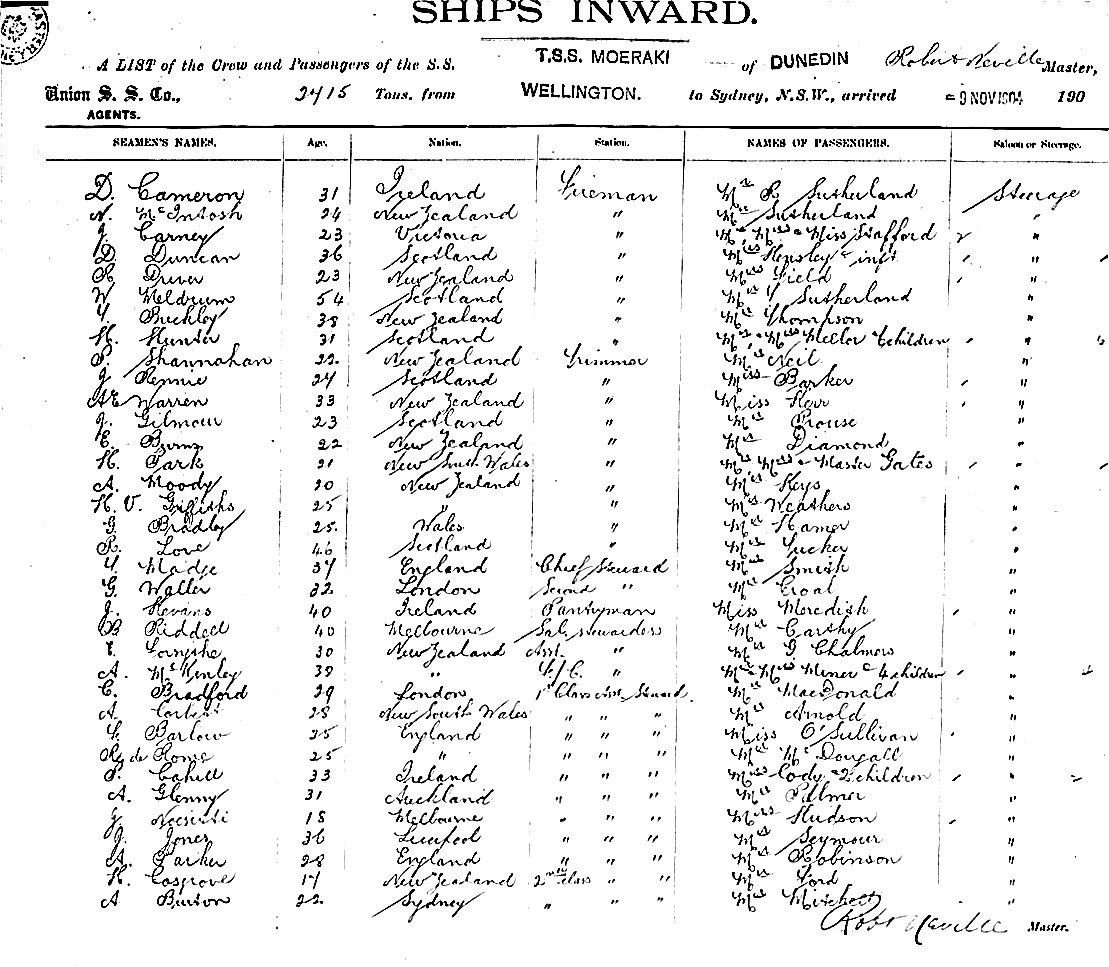 SHIPS INWARD.
A LIST of the Crew and Passengers of the S.S. T.S.S. MOERAKI of DUNEDIN Robert Neville Master,
Union S. S. Co., 2415 Tons, from WELLINGTON. to Sydney, N.S.W., arrived - 9 NOV 1904 190
AGENTS.
SEAMEN'S NAMES. Age. Nation. Station. NAMES OF PASSENGERS. Saloon or Steerage.
D. Cameron 31 Ireland Fireman Mr R Sutherland Steerage
N. McIntosh 24 New Zealand " Mr Sutherland "
J Carney 23 Victoria " Mr Mrs & Miss Stafford 2 "
D Duncan 36 Scotland " Mrs Hensley & inft "
R Driver 23 New Zealand " Field "
W Meldrum 54 Scotland " Mr Sutherland "
Buckley 38 New Zealand " Mr Thompson "
H. Hunter 31 Scotland " Mr & Mrs Mellor children "
P. Shannahan 22 New Zealand Trimmer Mr Neil "
J Rennie 24 Scotland " Miss Barker "
AE Warren 33 New Zealand " Miss Kerr "
J. Gilmour 23 Scotland " Mr Prouse "
E. Burns 22 New Zealand " Mr Diamond "
H. Park 21 New South Wales " Mrs & Master Gates "
A. Moody 20 New Zealand " Mr Keys "
H. V. Griffiths 25 " " Mr Weathers "
G. Bradley 25 Wales " Mr Hamer "
R. Love 46 Scotland " Mr Tucker "
Madge 37 England Chief Steward Mr Smith "
G. Waller 32 London Second " Mr Croal "
J. Hevans 40 Ireland Pantryman Miss Meredith "
B Riddell 40 Melbourne Sal. stewardess Mr Carthy "
Forsythe 30 New Zealand Asst. Mr G Chalmers "
A. McKinley 39 " F/C. " Mr & Mrs Miner & 4 children "
C. Bradford 29 London 1st Class Ast. Steward Mr MacDonald "
A. Corbett 28 New South Wales " " " Mr Arnold "
Barlow 25 England " " " Miss O'Sullivan "
R. de Rome 25 " " " " Mr McDougall "
P. Cahill 33 Ireland " " " Mrs Cody & 2 children "
A. Glenny 31 Auckland " " " Mr Palmer "
18 Melbourne " " " Hudson "
J. Jones 36 Liverpool " " " Mr Seymour "
A. Parker 28 England " " " Mr Robinson "
H. Cosgrove 17 New Zealand 2nd Class " " Mr Ford "
A Burton 22 Sydney " " " Mr Mitchell "
Robt Neville Master.